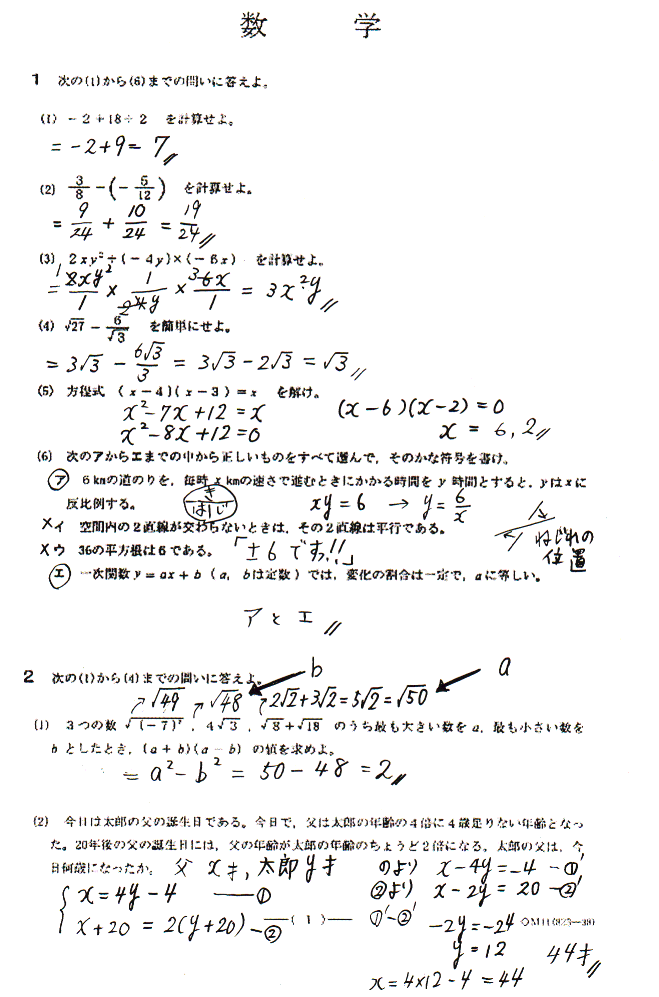 数 学
1 次の(1)から(6)までの問いに答えよ。
(1) －2＋18÷2 を計算せよ。
= -2+9= 7
(2) 3/8 －(－5/12) を計算せよ。
= 9/24 + 10/24 = 19/24
(3) 2xy²÷(－4y)×(－6x) を計算せよ。
= xy²/1 × 1/y × 3 6x/1 = 3x²y
(4) √27 － 6/√3 を簡単にせよ。
= 3√3 - 6√3/3 = 3√3 - 2√3 = √3
(5) 方程式 (x－4)(x－3)＝x を解け。
x²-7x+12=x (x-6)(x-2)=0
x²-8x+12=0 x = 6, 2
(6) 次のアからエまでの中から正しいものをすべて選んで，そのかな符号を書け。
ア 6kmの道のりを，毎時 x kmの速さで進むときにかかる時間を y 時間とすると，y は x に
反比例する。 き はじ xy=6 → y=6/x
×イ 空間内の2直線が交わらないときは，その2直線は平行である。 ねじれの
位置
×ウ 36の平方根は6である。 「±6です!!」
エ 一次関数 y＝ax＋b (a，bは定数)では，変化の割合は一定で，aに等しい。
アとエ
2 次の(1)から(4)までの問いに答えよ。 b a
√49 √48 2√2+3√2=5√2=√50
(1) 3つの数 √(－7)²，4√3，√8＋√18 のうち最も大きい数を a，最も小さい数を
b としたとき，(a＋b)(a－b) の値を求めよ。
= a²-b² = 50-48 = 2
(2) 今日は太郎の父の誕生日である。今日で，父は太郎の年齢の4倍に4歳足りない年齢となっ
た。20年後の父の誕生日には，父の年齢が太郎の年齢のちょうど2倍になる。太郎の父は，今
日何歳になったか。 父 x才, 太郎 y才 ①より x-4y=-4 -①'
x=4y-4 —① ②より x-2y=20 -②'
x+20=2(y+20) -② —( 1 )— ①'-②' -2y=-24
y=12 44才
x=4×12-4=44